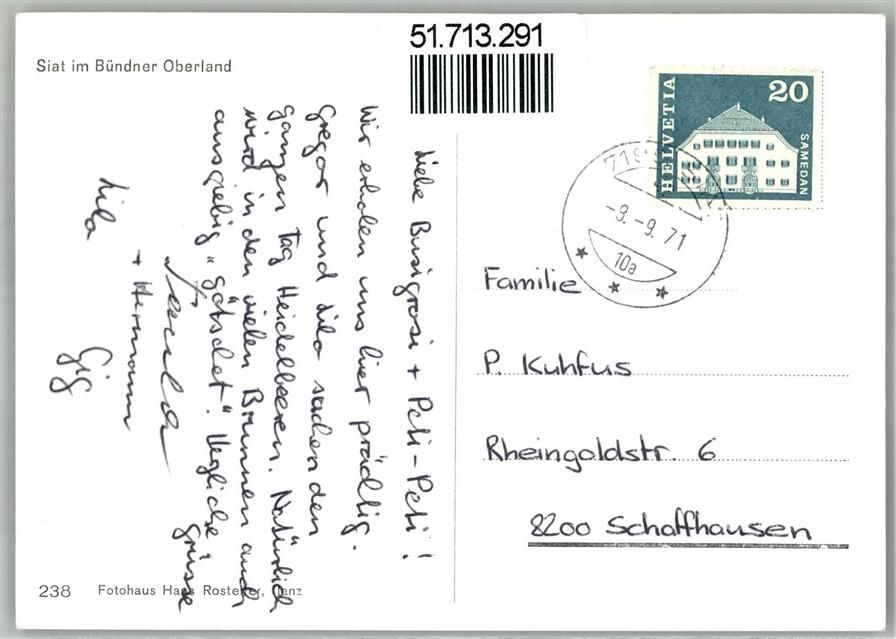 51.713.291
Siat im Bündner Oberland
HELVETIA
20
SAMEDAN
719
-8.-9.71
10a
Liebe Busigrosi + Peti-Peti!
Wir erholen uns hier prächtig.
Gregor und Lilo suchen den
ganzen Tag Heidelbeeren. Natürlich
wird in den vielen Brunnen auch
ausgiebig "gätschet". Herzliche
Grüsse
+ Hermann
Lilo
Gig
Familie
P. Kuhfus
Rheingoldstr. 6
8200 Schaffhausen
238 Fotohaus Hans Rosteter, Ilanz